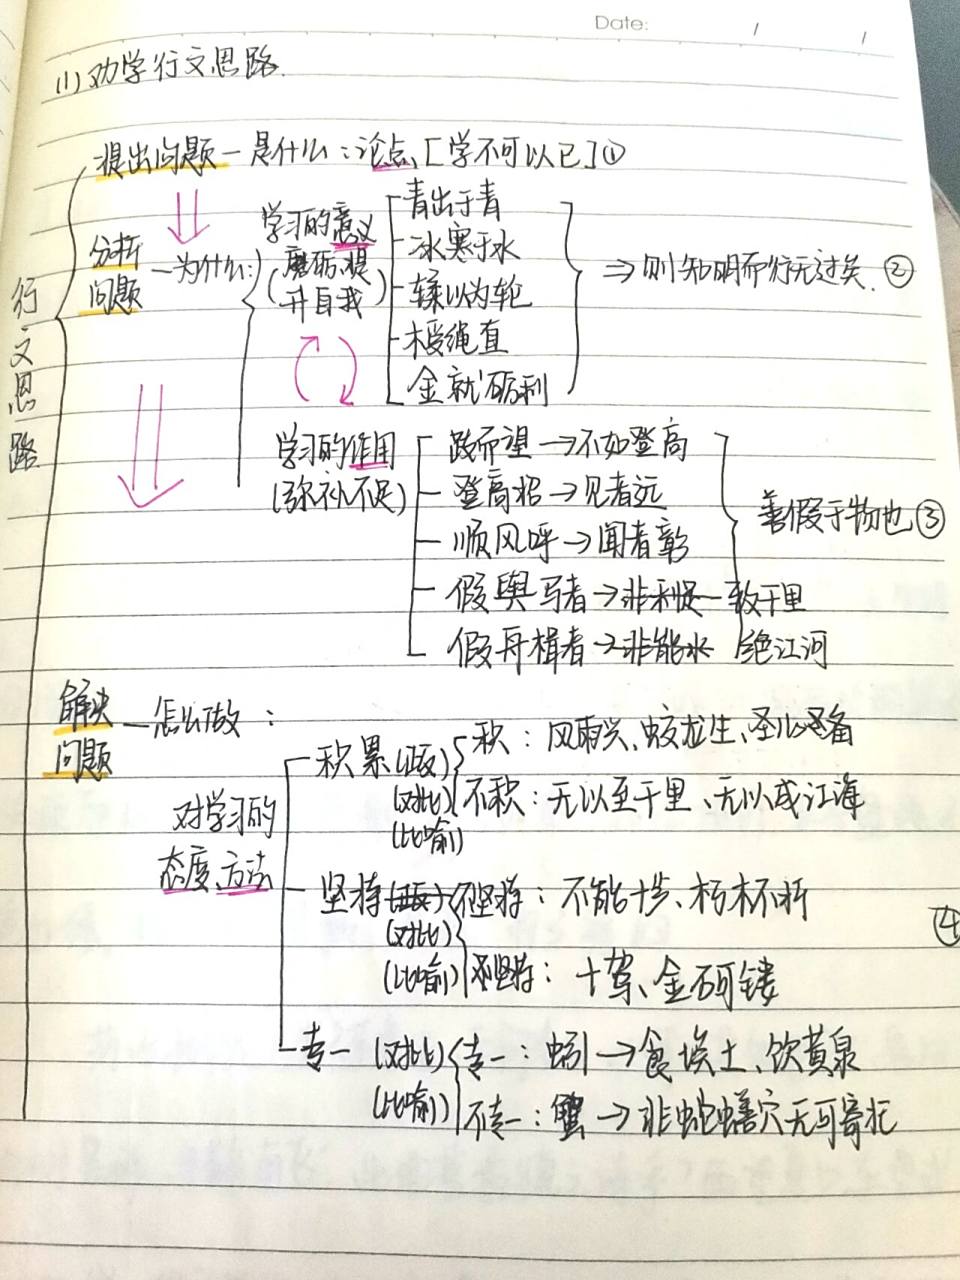 Date: / /
(1) 劝学行文思路.
行文思路
提出问题 — 是什么：论点、[学不可以已] ①
分析问题 — 为什么：
学习的意义
(磨砺、提升自我)
青出于青
冰寒于水
輮以为轮
木受绳直
金就砺利
⇒ 则知明而行无过矣. ②
学习的作用
(弥补不足)
跂而望 → 不如登高
登高招 → 见者远
顺风呼 → 闻者彰
假舆马者 → 非利足 — 致千里
假舟楫者 → 非能水 绝江河
善假于物也 ③
解决问题 — 怎么做：
对学习的态度、方法
积累
(对比)
(比喻)
积：风雨兴、蛟龙生、圣心备
不积：无以至千里、无以成江海
坚持
(对比)
(比喻)
不坚持：不能十步、朽木不折
坚持：十驾、金石可镂
④
专一 (对比)
(比喻)
专一：蚓 → 食埃土、饮黄泉
不专一：蟹 → 非蛇蟮穴无可寄托